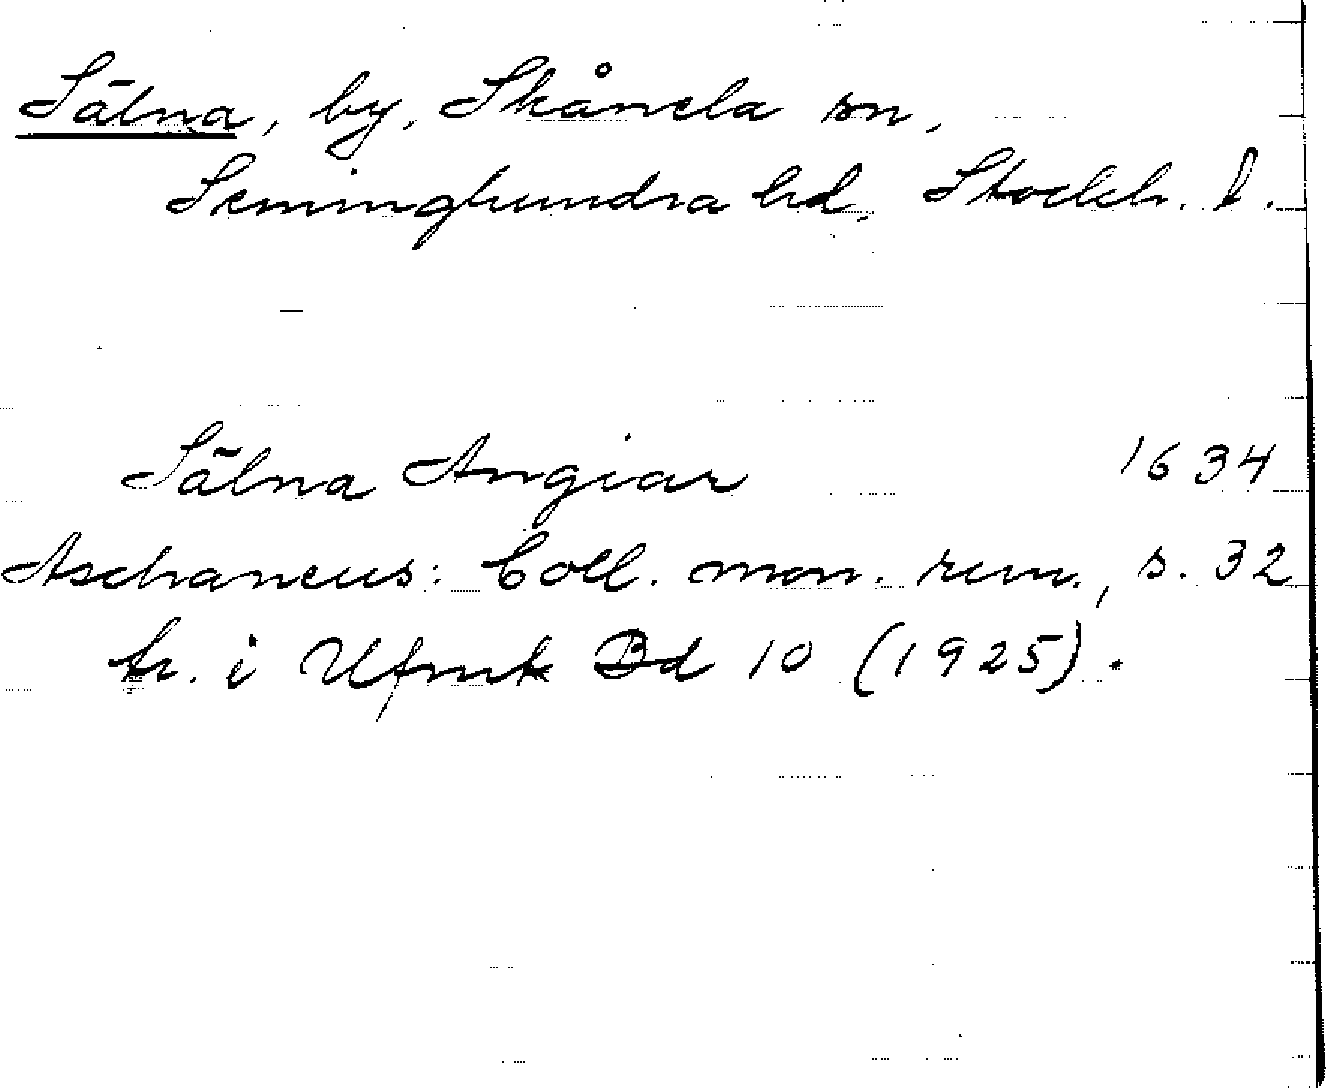 Sälna, by, Skånela sn,
Seminghundra hd, Stockh. l.
Sälna Ängiar 1634
Aschaneus: Coll. mon. run., s. 32
tr. i Ufmt Bd 10 (1925).